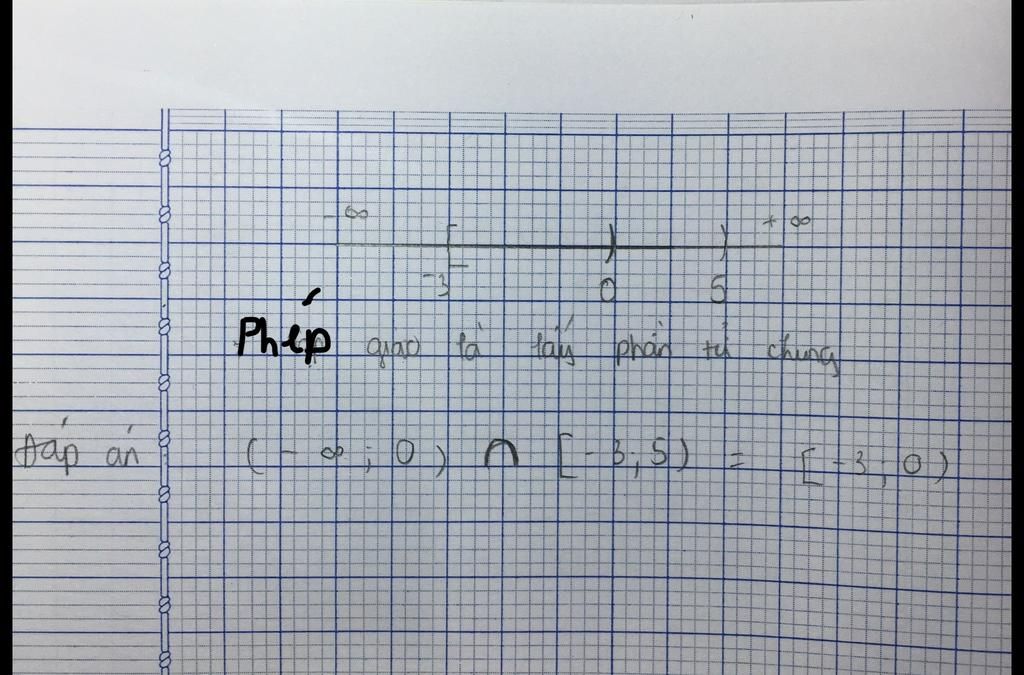 - ∞ + ∞
-3 0 5
Phép giao là lấy phần tử chung
Đáp án (- ∞; 0) ∩ [-3; 5) = [-3; 0)